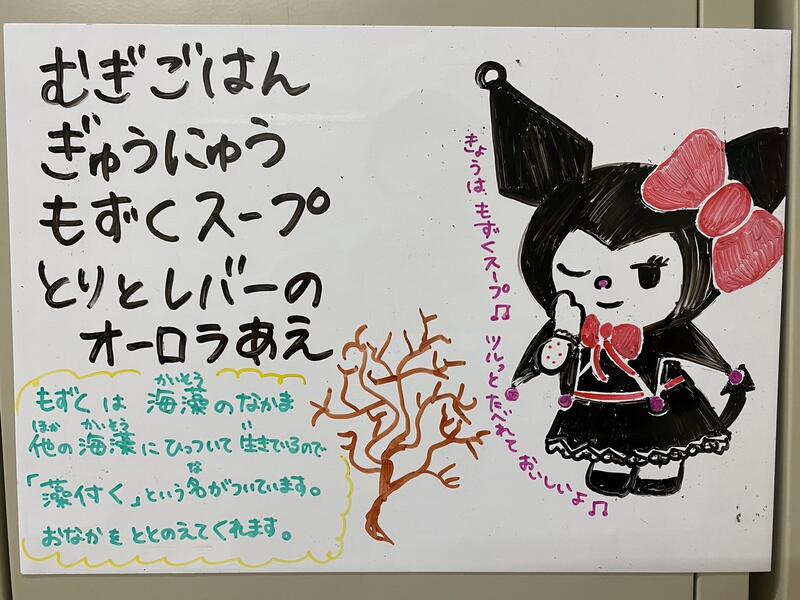 むぎごはん
ぎゅうにゅう
もずくスープ
とりとレバーの
オーロラあえ
きょうは もずくスープ♫ ツルっと たべれて おいしいよ♫
かいそう
もずくは 海藻のなかま
ほか かいそう い
他の海藻にひっついて生きているので
な
「藻付く」という名がついています。
おなかをととのえてくれます。